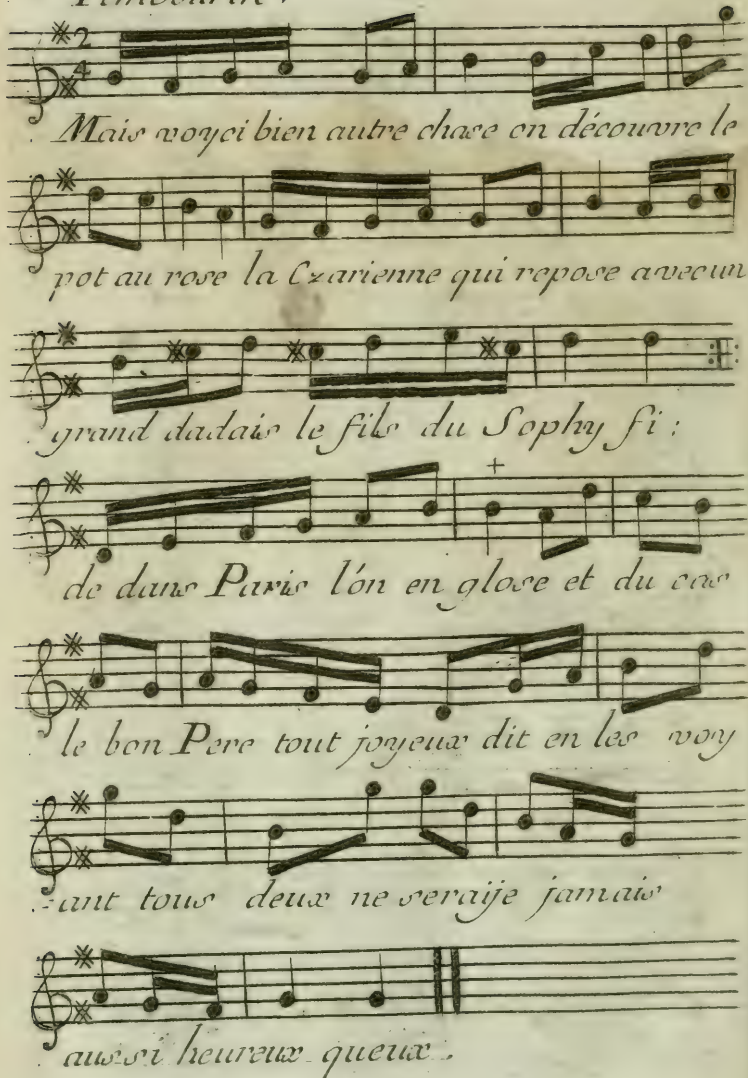 2
4
Mais voyci bien autre chose on découvre le
pot au rose la Czarienne qui repose avec un
grand dadais le fils du Sophy fi :
de dans Paris l'on en glose et du cas
le bon Pere tout joyeux dit en les voy
-ant tous deux ne seraije jamais
aussi heureux queux.